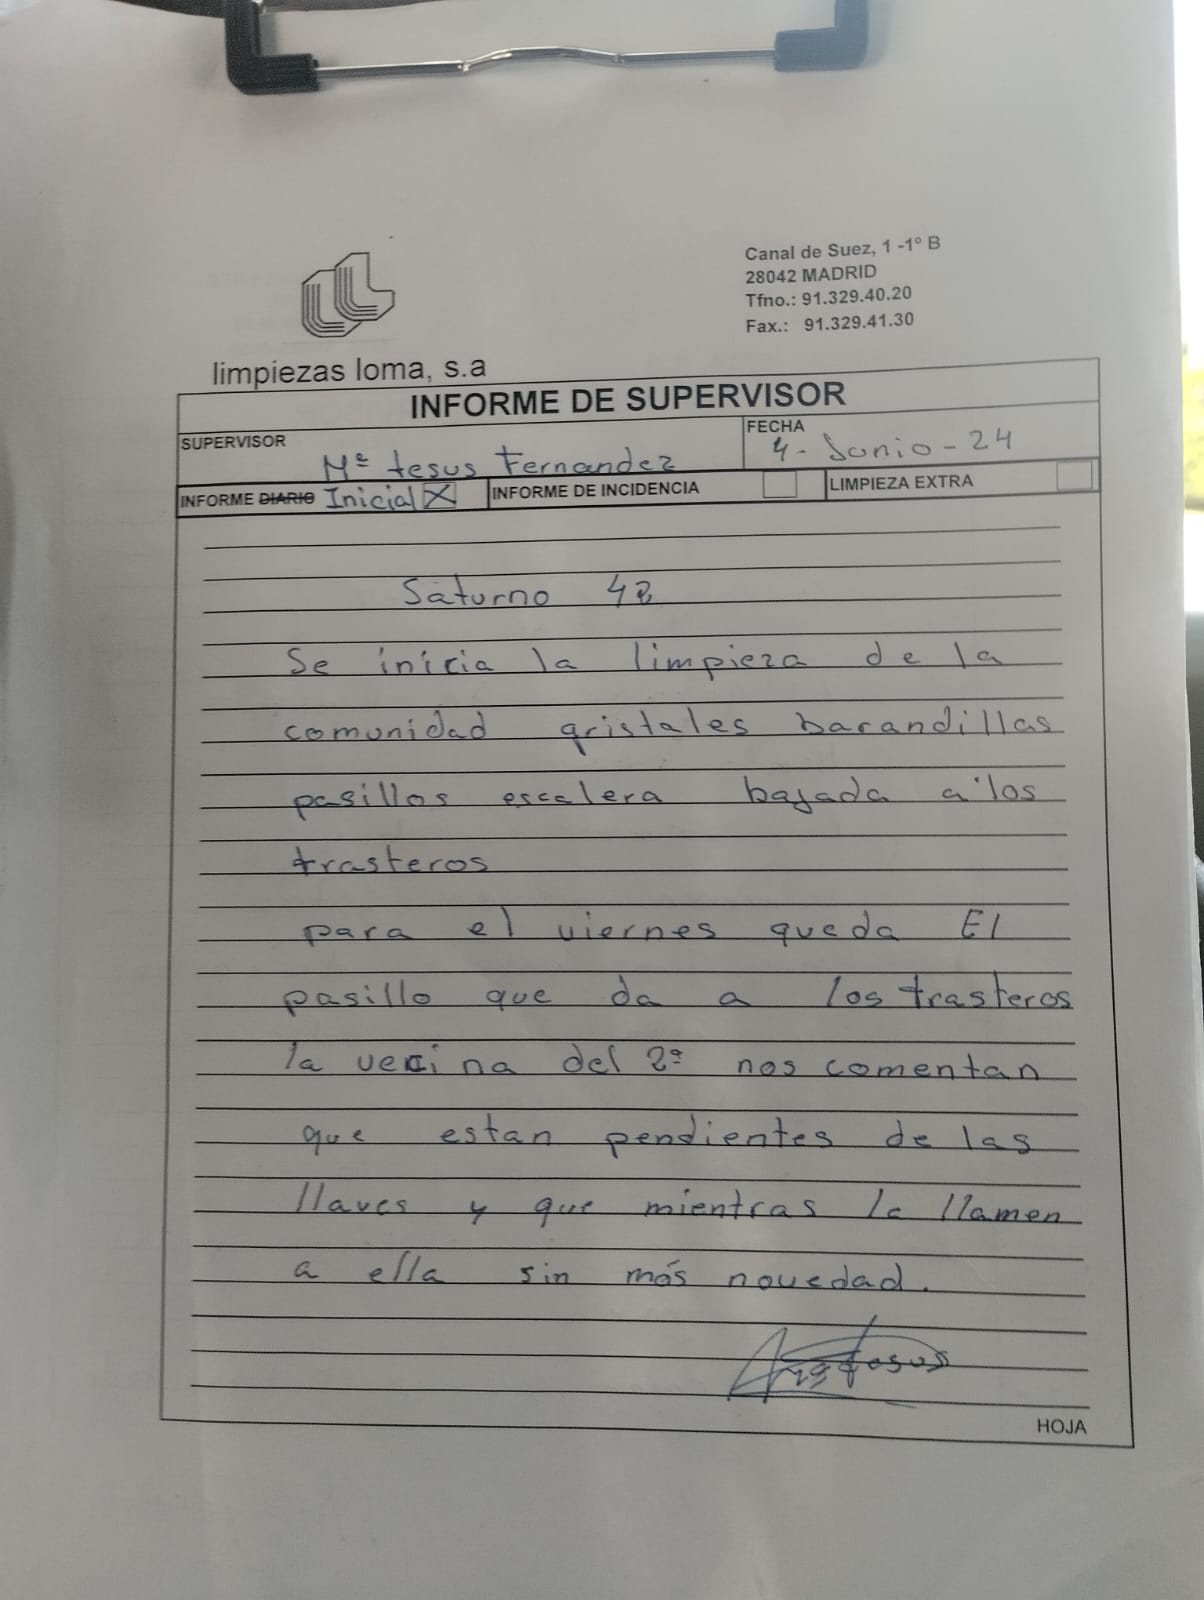 Canal de Suez, 1 -1º B
28042 MADRID
Tfno.: 91.329.40.20
Fax.: 91.329.41.30
limpiezas loma, s.a
INFORME DE SUPERVISOR
SUPERVISOR Mª Jesus Fernandez
FECHA 4 - Junio - 24
INFORME DIARIO Inicial X INFORME DE INCIDENCIA LIMPIEZA EXTRA
Saturno 42
Se inicia la limpieza de la
comunidad qristales barandillas
pasillos escalera bajada a los
trasteros
para el viernes queda El
pasillo que da a los trasteros
la vecina del 2º nos comentan
que estan pendientes de las
llaves y que mientras la llamen
a ella sin más novedad.
HOJA